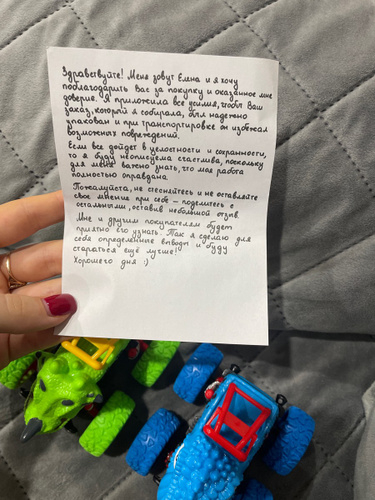 Здравствуйте! Меня зовут Елена и я хочу
поблагодарить Вас за покупку и оказанное мне
доверие. Я приложила все усилия, чтобы Ваш
заказ, который я собирала, был надежно
упакован и при транспортировке он избежал
возможных повреждений.
Если все дойдет в целостности и сохранности,
то я буду неописуемо счастлива, поскольку
для меня важно знать, что моя работа
полностью оправдана
Пожалуйста, не стесняйтесь и не оставляйте
свое мнение при себе - поделитесь с
остальными, оставив небольшой отзыв
Мне и другим покупателям будет
приятно его узнать. Так я сделаю для
себя определенные выводы и буду
стараться ещё лучше!
Хорошего дня :)